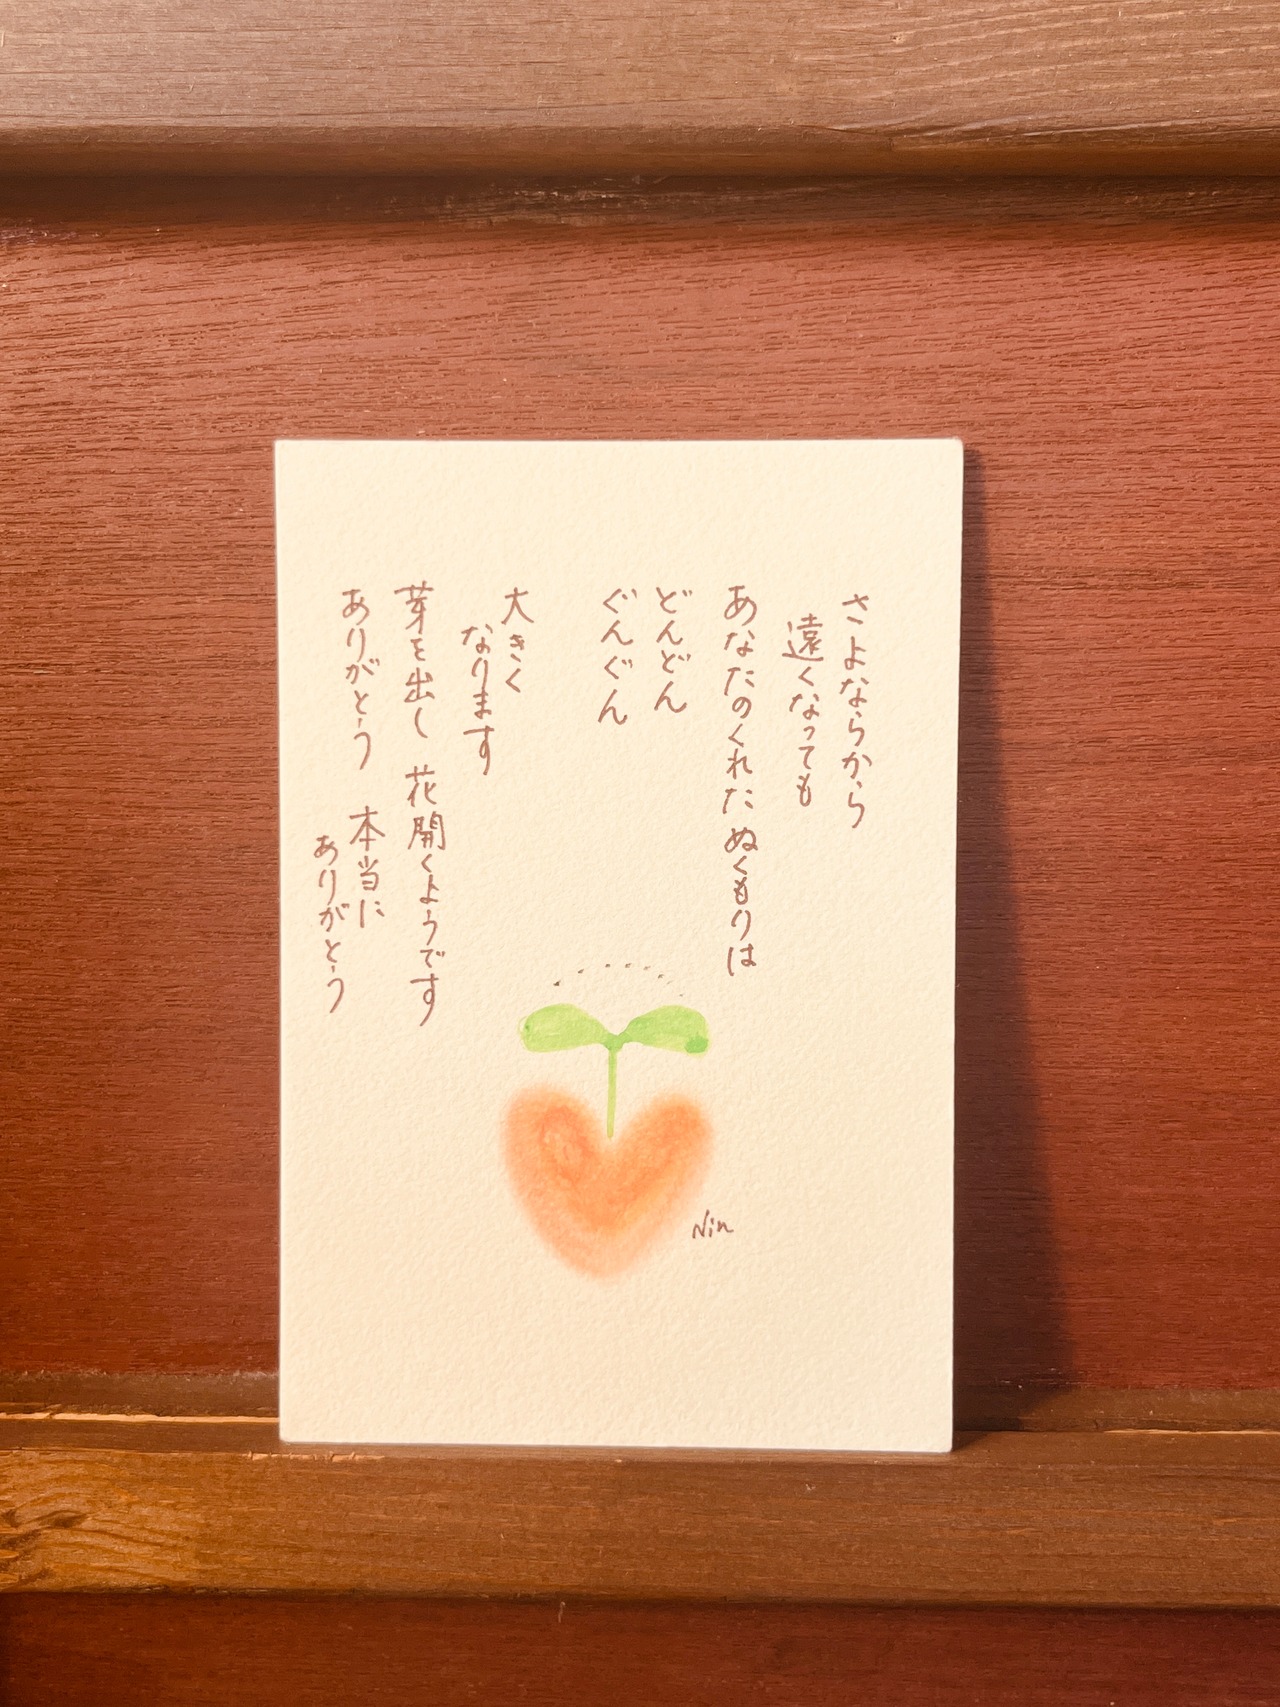 さよならから
遠くなっても
あなたのくれたぬくもりは
どんどん
ぐんぐん
大きく
なります
芽を出し 花開くようです
ありがとう 本当に
ありがとう
Nin